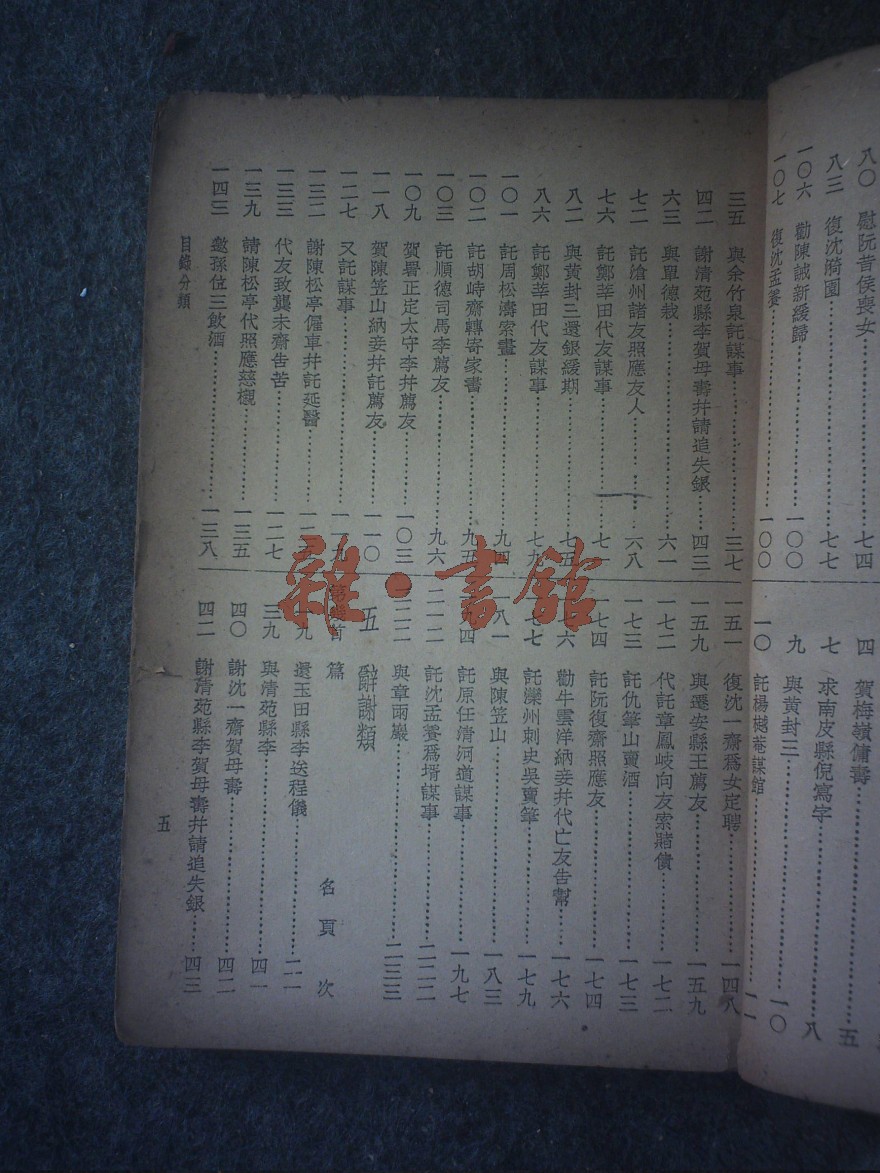 八〇 慰阮昔侯喪女 七四
八三 復沈漪園 七七
一〇六 勸陳誠新緩歸 一〇〇
一〇七 復沈孟養 一〇〇
四 賀梅嶺傭書 五
七 求南皮縣倪寫字 八
九 與黃封三 一〇
一〇 託楊樾菴謀館 一一
三五 與余竹泉託謀事 三七
四二 謝清苑縣李賀母壽幷請追失銀 四三
六三 與單德栽 六一
七二 託滄州諸友照應友人 六八
七六 託鄭莘田代友謀事
八二 與黃封三還銀緩期 七五
八六 託鄭莘田代友謀事 七九
一〇一 託周松濤索畫 九四
一〇二 託胡峙齋轉寄家書 九五
一〇三 託順德司馬李薦友 九六
一〇九 賀署正定太守李幷薦友 一〇三
一一八 賀陳笠山納妾幷託薦友 一一〇
一二七 又託謀事 一一九
一三二 謝陳松亭僱車幷託延醫
一三三 代友致龔未齋告苦 一二七
一三九 請陳松亭代照應慈櫬 一三五
一四三 邀孫位三飲酒 一三八
目錄分類
一五一 復沈一齋爲女定聘 一四八
一五九 與遷安縣王薦友 一五九
一七二 代託章鳳岐向友索賭債 一七二
一七三 託仇筆山賣酒 一七三
一七四 託阮復齋照應友 一七四
勸牛雲洋納妾幷代亡友告幫 一七六
託灤州刺史吳賣筆 一七九
與陳笠山 一八三
託原任清河道謀事 一九七
二一二 託沈孟養爲壻謀事 二二二
二二二 與章雨巖 二三三
五 辭謝類
第幾首 篇名 頁次
一九 還玉田縣李送程儀 二一
三九 與清苑縣李 四一
四〇 謝沈一齋賀母壽 四二
四二 謝清苑縣李賀母壽幷請追失銀 四三
五
雜·書館